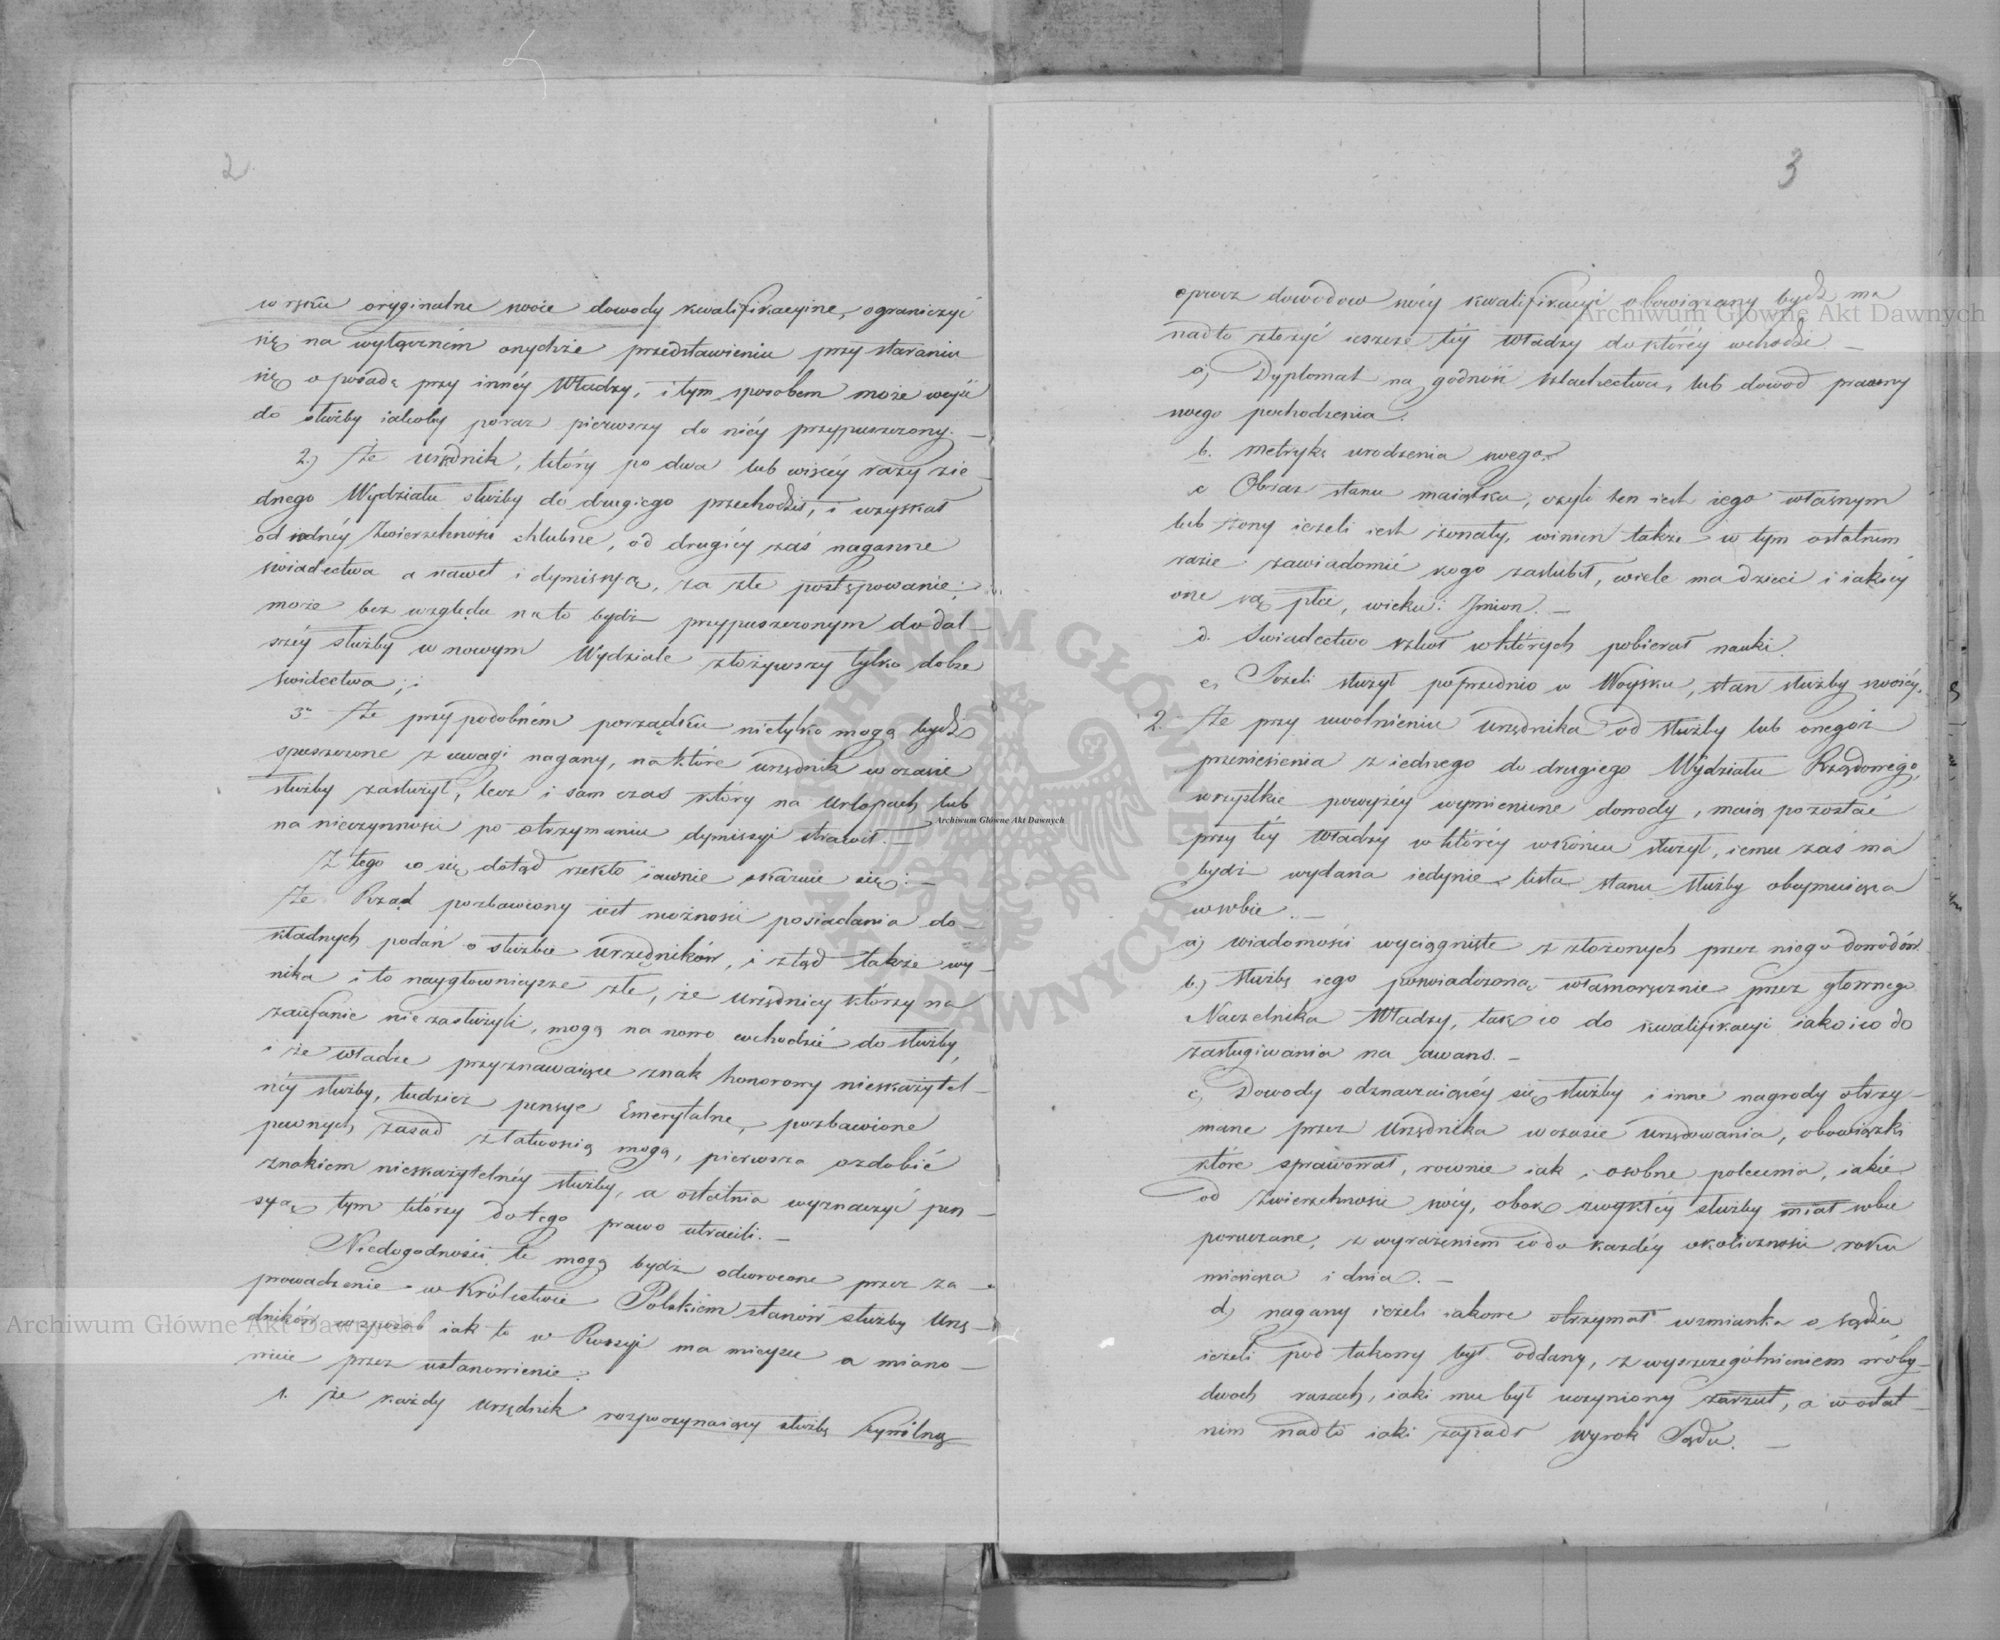 2
w ręku oryginalne swoie dowody kwalifikacyine, ograniczyć
się na wyłącznem onychże przedstawieniu przy staraniu
się o posadę przy innéy Władzy, i tym sposobem może weyść
do służby iakoby poraz pierwszy do niéy przypuszczony. —
2.) Że urzędnik, który po dwa lub więcéy razy zie-
dnego Wydziału służby do drugiego przechodził, i uzyskał
od iednéy Zwierzchności chlubne, od drugiéy zaś naganne
świadectwa a nawet i dymissyą, za złe postępowanie;
może bez względu na to bydź przypuszczonym do dal-
széy służby w nowym Wydziale złożywszy tylko dobre
świdectwa;
3o Że przy podobném porządku nietylko mogą bydź
spuszczone z uwagi nagany, na które urzędnik w czasie
służby zasłużył, lecz i sam czas który na urlopach lub
na nieczynności po otrzymaniu dymissyi strawił. —
Z tego co się dotąd rzekło iawnie okazuie się: —
Że Rząd pozbawiony iest możności posiadania do-
kładnych podań o służbie urzędników, i ztąd także wy-
nika i to naygłównieysze złe, że urzędnicy którzy na
zaufanie nie zasłużyli, mogą na nowo wchodzić do służby,
i że władze przyznawaiące znak honorowy nieskazitel-
néy służby, tudzież pensye Emerytalne, pozbawione
pewnych zasad z łatwością mogą, pierwsza ozdobić
znakiem nieskazytelnéy służby, a ostatnia wyznaczyć pen-
syą tym którzy do tego prawo utracili. —
Niedogodności te mogą bydź odwrócone przez za-
prowadzenie w Królestwie Polskiém stanów służby Urzę-
dników w sposób iak to w Rossyi ma mieysce a miano-
wicie przez ustanowienie.
1. że każdy urzędnik rozpoczynaiący służbę Cywilną
3
oprocz dowodow swéy kwalifikacyi obowiązany bydź ma
nadto złożyć ieszcze téy Władzy do któréy wchodzi. —
a) Dyplomat na godność szlachectwa, lub dowód prawny
swego pochodzenia.
b. metrykę urodzenia swego.
c Obraz stanu maiątku, czyli ten iest iego własnym
lub żony ieżeli iest żonaty, winien także w tym ostatnim
razie zawiadomić kogo zaślubił, wiele ma dzieci i iakiéy
one są płci, wieku i Imion. —
d. Świadectwo szkoł w których pobierał nauki.
e, Ieżeli służył poprzednio w Woysku, stan służby swoiéy.
2. Że przy uwolnieniu urzędnika od służby lub onegoż
przeniesienia z iednego do drugiego Wydziału Rządowego,
wszystkie powyżéy wymienione dowody, maią pozostać
przy téy Władzy w któréy w końcu służył, iemu zaś ma
bydź wydana iedynie lista stanu służby obeymuiąca
w sobie. —
a) wiadomości wyciągnięte z złożonych przez niego dowodów
b.) służbę iego poświadczoną własnoręcznie przez głównego
Naczelnika Władzy, tak co do kwalifikacyi iako i co do
zasługiwania na awans. —
c, Dowody odznaczaiącéy się służby i inne nagrody otrzy-
mane przez Urzędnika w czasie urzędowania, obowiązki
które sprawował, rownie iak i osobne polecenia, iakie
od Zwierzchności swéy, obok zwykłéy służby miał sobie
poruczane, z wyrażeniem co do każdéy okoliczności roku
miesiąca i dnia. —
d) nagany ieżeli iakowe otrzymał wzmianka o sądzie,
ieżeli pod takowy był oddany, z wyszczególnieniem w oby-
dwoch razach, iaki mu był uczyniony zarzut, a w ostat-
nim nadto iaki zapadł wyrok Sądu. —
Archiwum Główne Akt Dawnych
Archiwum Główne Akt Dawnych
Archiwum Główne Akt Dawnych
ARCHIWUM GŁÓWNE AKT DAWNYCH